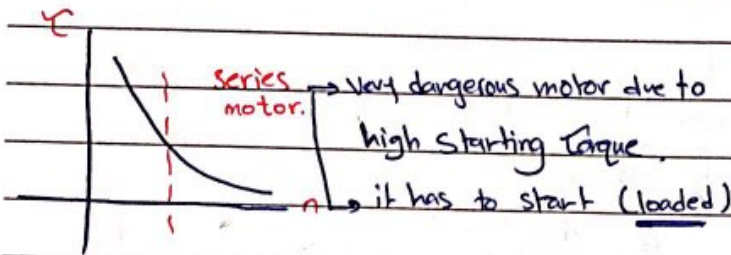 τ
series
motor.
→ very dangerous motor due to
high starting Torque.
n
→ it has to start (loaded)